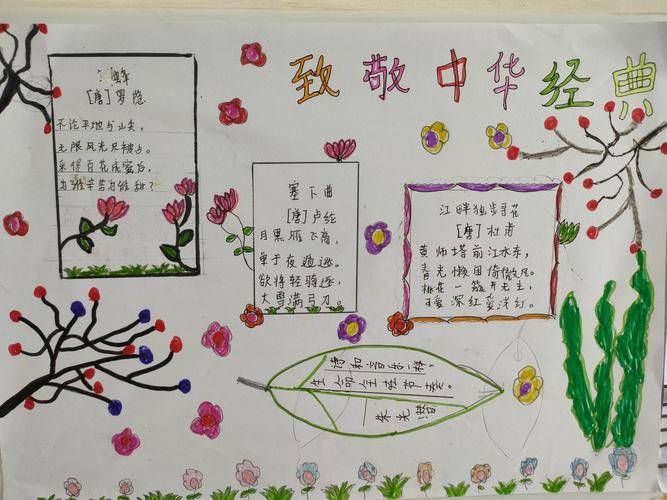 致敬中华经典
蜂
[唐]罗隐
不论平地与山尖，
无限风光尽被占。
采得百花成蜜后，
为谁辛苦为谁甜？
塞下曲
[唐]卢纶
月黑雁飞高，
单于夜遁逃。
欲将轻骑逐，
大雪满弓刀。
江畔独步寻花
[唐]杜甫
黄师塔前江水东，
春光懒困倚微风。
桃花一簇开无主，
可爱深红爱浅红。
诗和音乐一样，
生命全在节奏。
—朱光潜